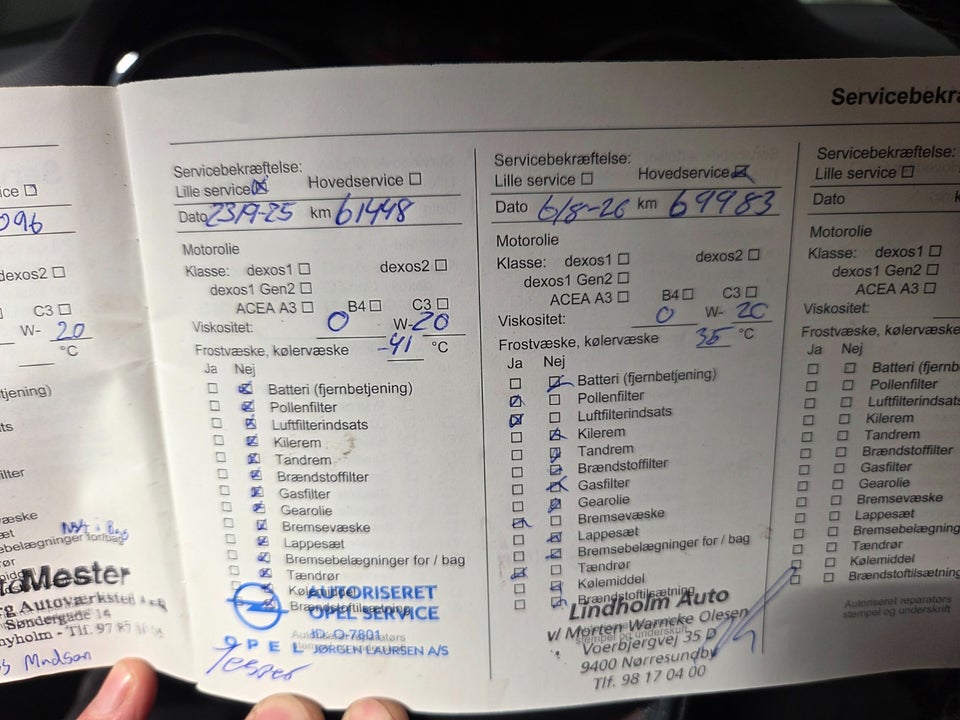 Servicebekræ
ice
096
dexos2
C3
W- 20
°C
tjening)
ats
ilter
væske
æt
Mester
rg Autoværksted
Søndergade 14
nyholm - Tlf. 97
Servicebekræftelse:
Lille service Hovedservice
Dato 23/9-25 km 61448
Motorolie
Klasse: dexos1 dexos2
dexos1 Gen2
ACEA A3 B4 C3
Viskositet: 0 W-20
Frostvæske, kølervæske -41 °C
Ja Nej
Batteri (fjernbetjening)
Pollenfilter
Luftfilterindsats
Kilerem
Tandrem
Brændstoffilter
Gasfilter
Gearolie
Bremsevæske
Lappesæt
Bremsebelægninger for / bag
Tændrør
Kølemiddel
Brændstoftilsætning
AUTORISERET
OPEL SERVICE
ID. O-7801
OPEL JØRGEN LAURSEN A/S
Jesper
Servicebekræftelse:
Lille service Hovedservice
Dato 6/8-26 km 69983
Motorolie
Klasse: dexos1 dexos2
dexos1 Gen2
ACEA A3 B4 C3
Viskositet: 0 W- 20
Frostvæske, kølervæske 35 °C
Ja Nej
Batteri (fjernbetjening)
Pollenfilter
Luftfilterindsats
Kilerem
Tandrem
Brændstoffilter
Gasfilter
Gearolie
Bremsevæske
Lappesæt
Bremsebelægninger for / bag
Tændrør
Kølemiddel
Brændstoftilsætning
Lindholm Auto
v/ Morten Warncke Olesen
Voerbjergvej 35 D
9400 Nørresundby
Tlf. 98 17 04 00
Servicebekræftelse:
Lille service
Dato
Motorolie
Klasse: dexos1
dexos1 Gen2
ACEA A3
Viskositet:
Frostvæske, kølervæske
Ja Nej
Batteri (fjernb
Pollenfilter
Luftfilterindsats
Kilerem
Tandrem
Brændstoffilter
Gasfilter
Gearolie
Bremsevæske
Lappesæt
Bremsebelægning
Tændrør
Kølemiddel
Brændstoftilsætning
Autoriseret reparatørs
stempel og underskrift